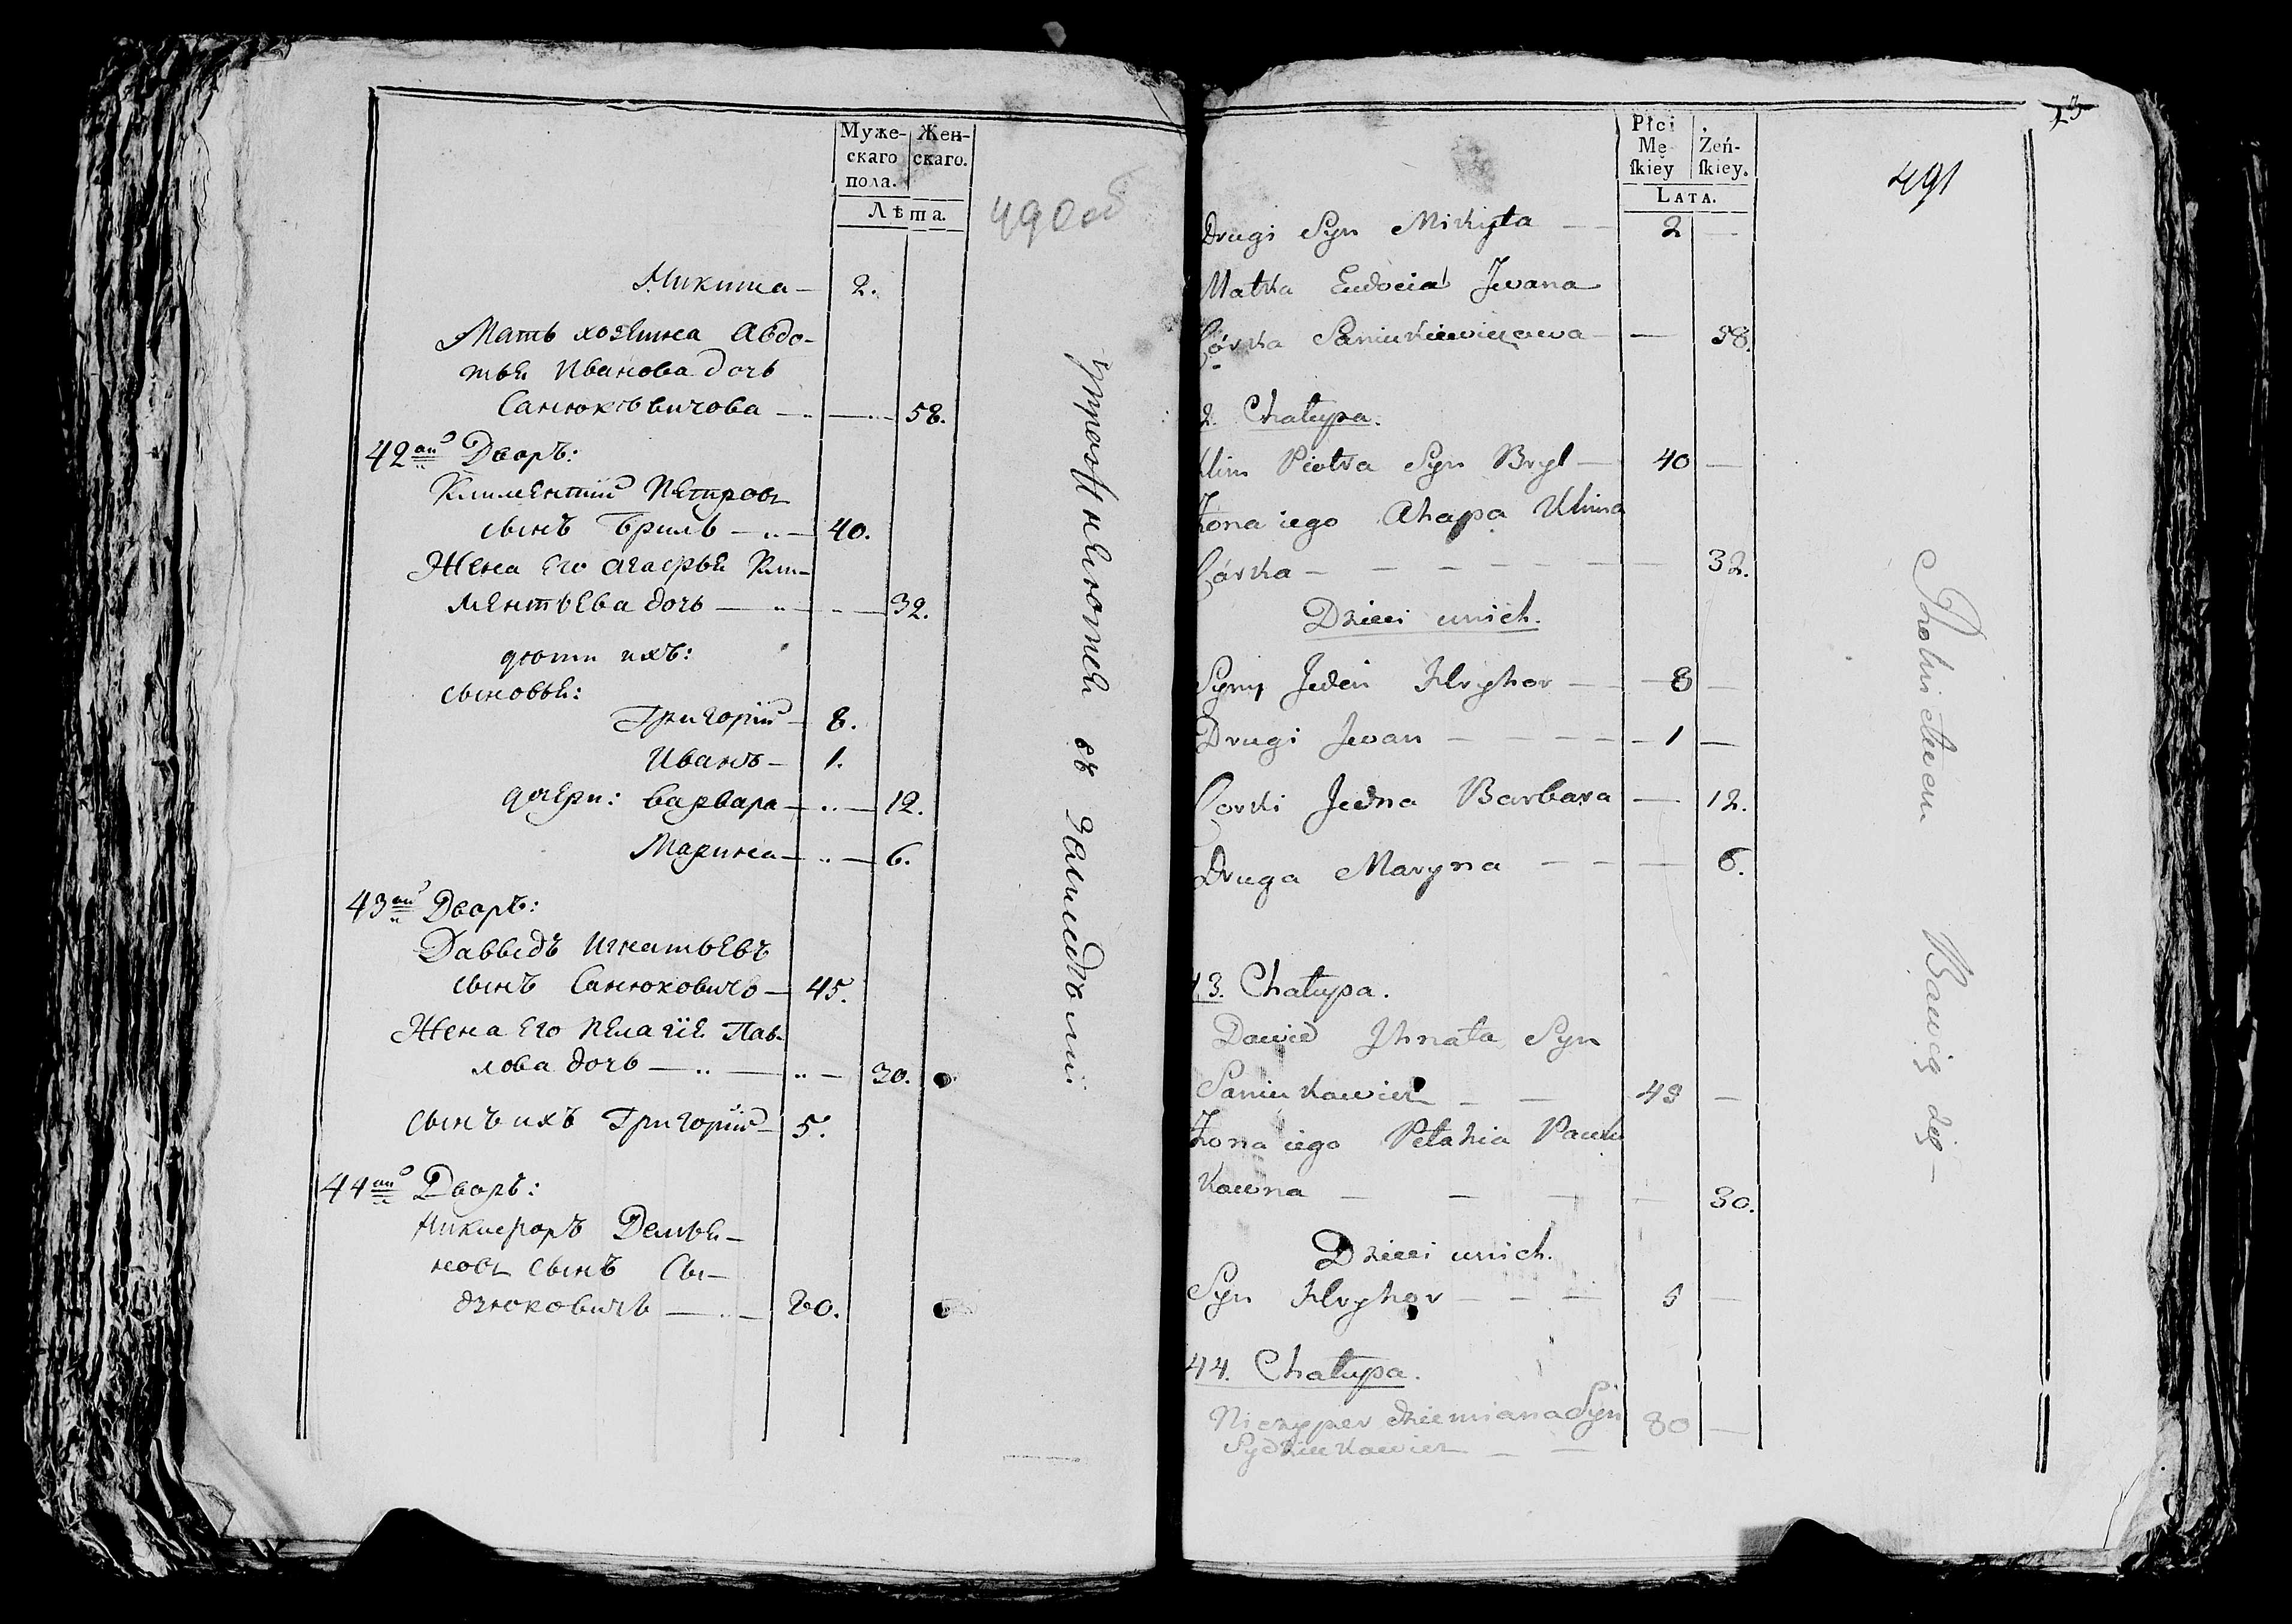 Муже-
скаго
пола.
Жен-
скаго.
Лѣта.
490об
Микита — 2.
Мать хозяина Авдо-
тья Иванова дочь
Санюкѣвичова — 58.
42ой Дворъ:
Климентій Петровъ
сынъ Бриль — 40.
Жена его Агафья Кли-
ментьева дочь — 32.
Дѣти ихъ:
сыновья:
Григорій — 8.
Иванъ — 1.
Дочери: Варвара — 12.
Марина — 6.
43ой Дворъ:
Давыдъ Игнатьевъ
сынъ Санюковичъ — 45.
Жена его Пелагія Пав-
лова дочь — 30.
сынъ ихъ Григорій — 5.
44ой Дворъ:
Никифоръ Демья-
новъ сынъ Сы-
дзюковичъ — 80.
упражняются въ
Płci
Mę-
ſkiey
Żeń-
ſkiey.
LATA.
491
Drugi Syn Mikyta — 2 —
Matka Eudocia Jwana
Córka Saniukiewiczowa — 58.
2. Chałupa.
Klim Piotra Syn Bryl — 40 —
Żona iego Ahapa Klima
Córka — 32.
Dzieci unich.
Syny Jeden Hryhor — 8 —
Drugi Jwan — 1 —
Corki Jedna Barbara — 12.
Druga Maryna — 6.
43. Chałupa.
Dawid Jhnata Syn
Saniukawicz — 45 —
Żona iego Pełahia Pawłu
kowna — 30.
Dzieci unich.
Syn Hryhor — 5 —
44. Chałupa.
Niczyper Dziemiana Syn 80 —
Sydziukawicz —
Bawią się —